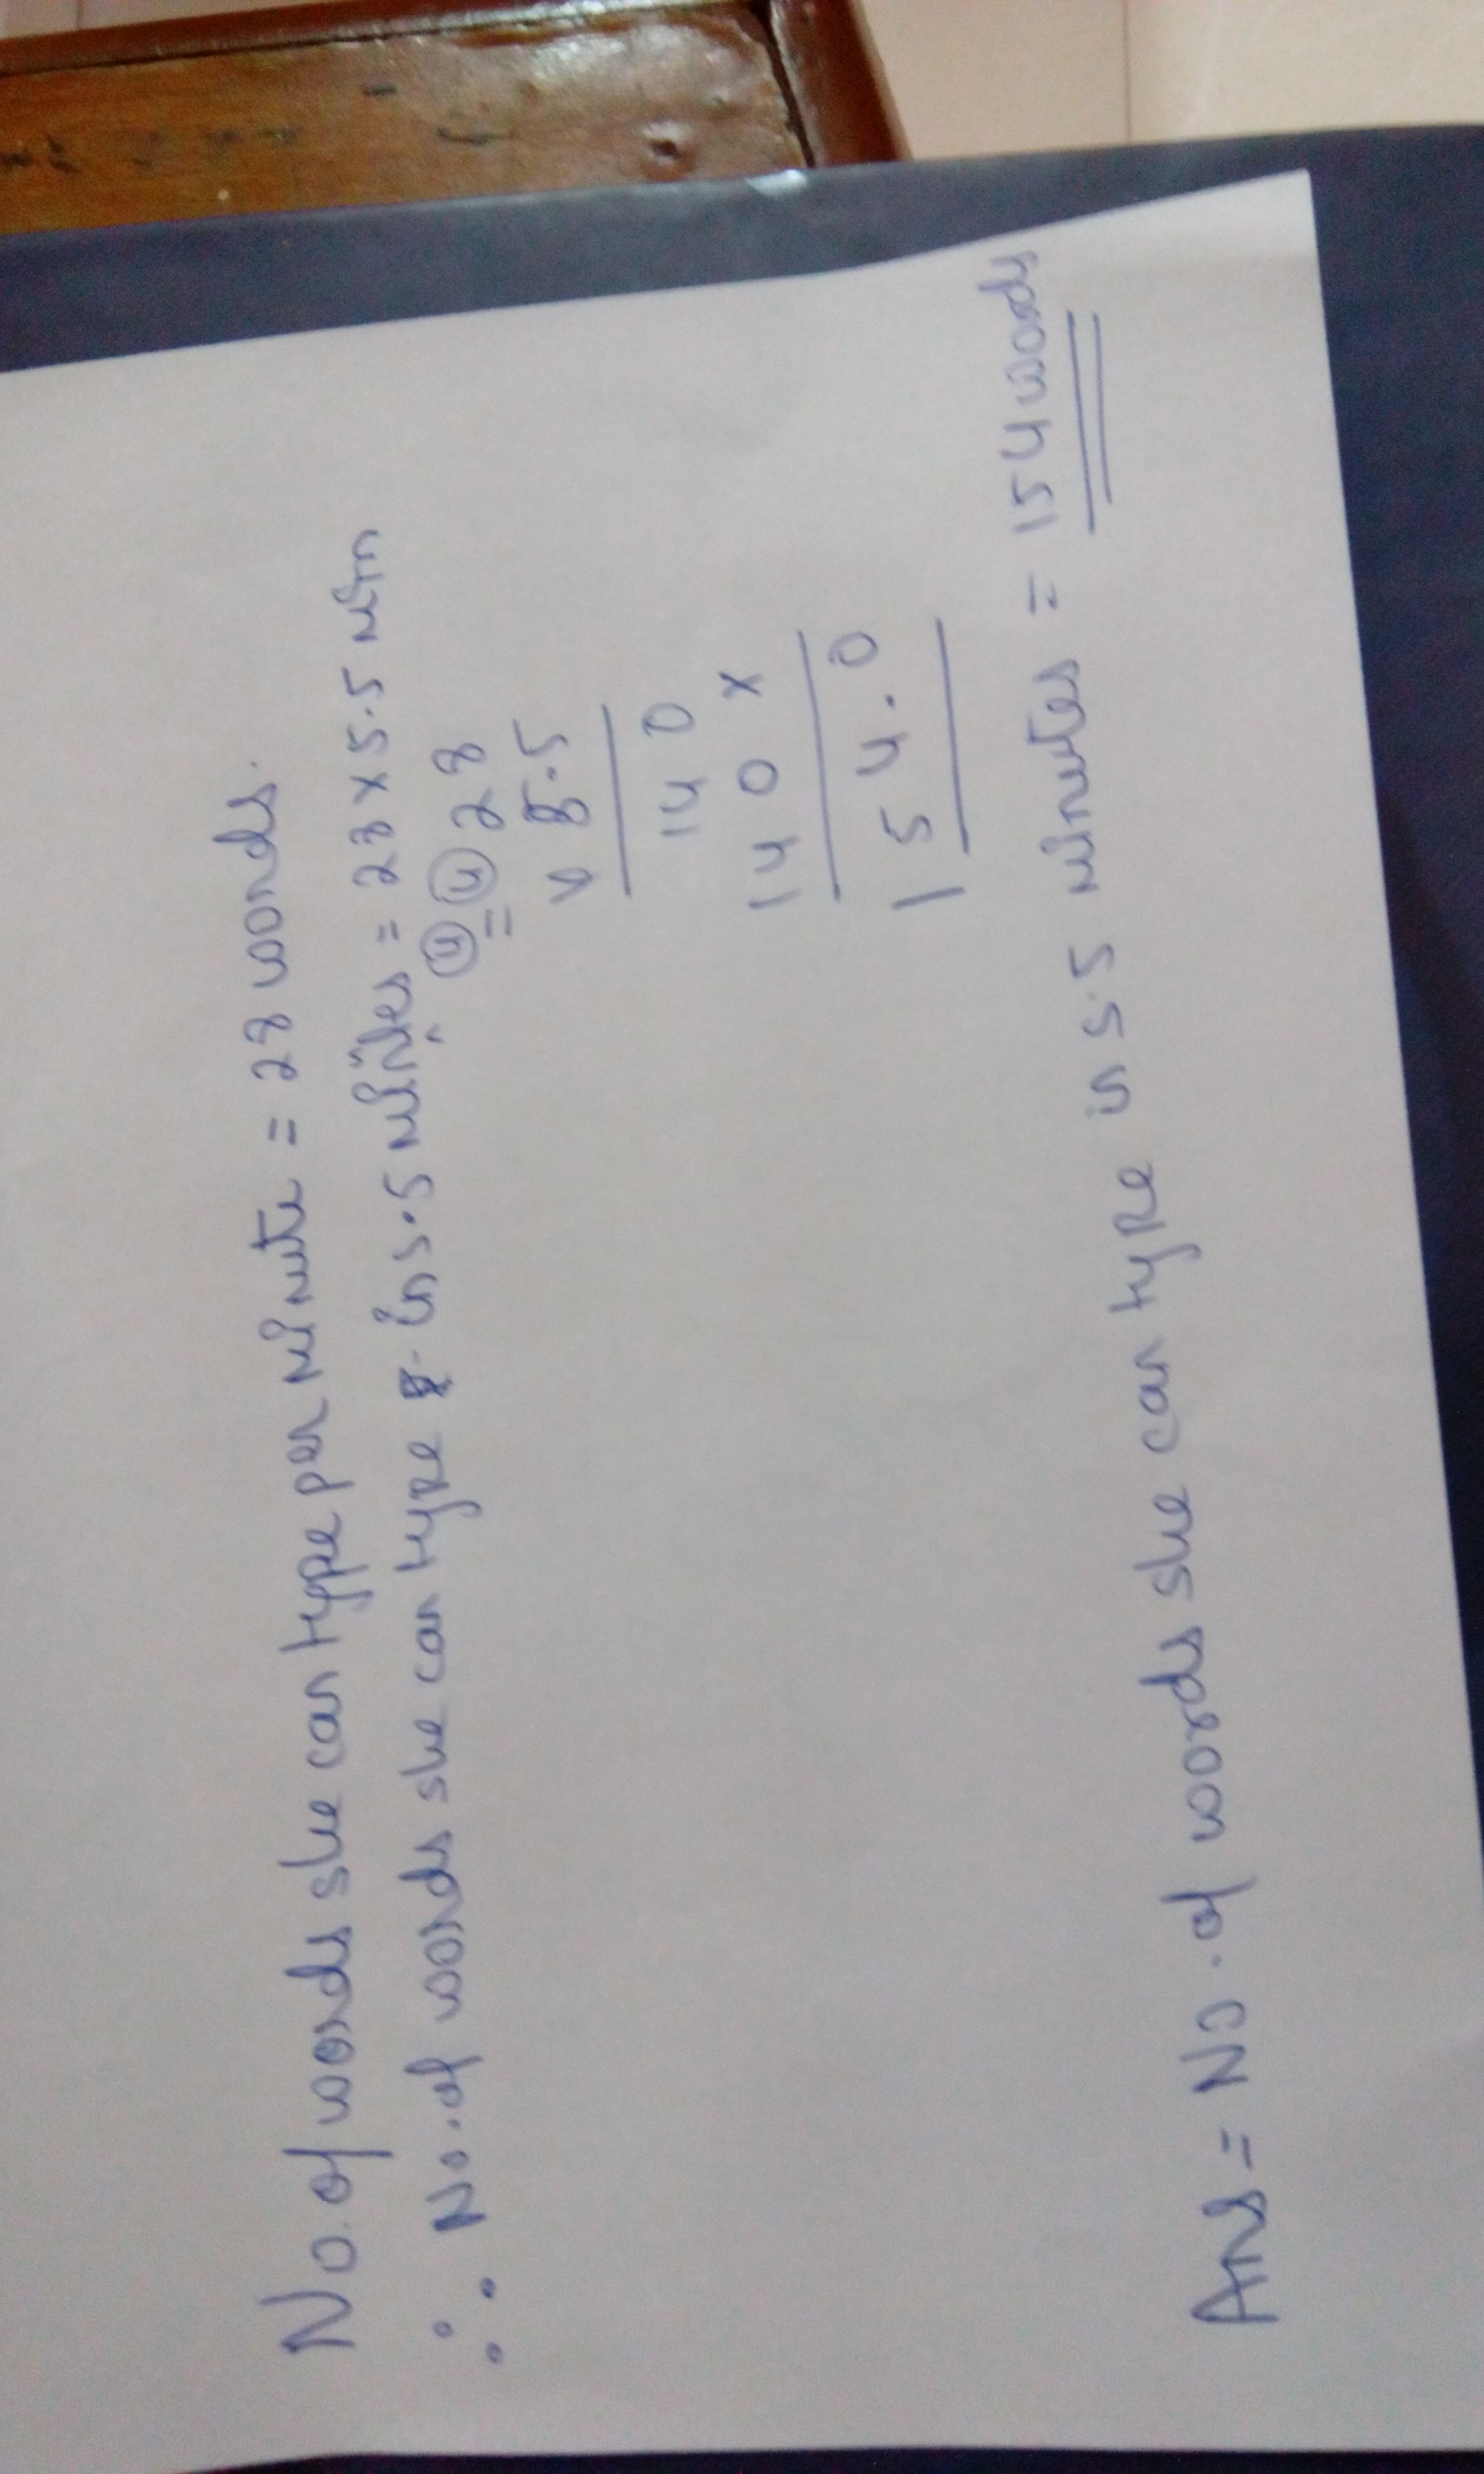 No. of words she can type per minute = 28 words.
∴ No. of words she can type in 5.5 minutes = 28 x 5.5 min
④ ④ 28
= x 5.5
140
140x
154.0
Ans = No. of words she can type in 5.5 minutes = 154 words